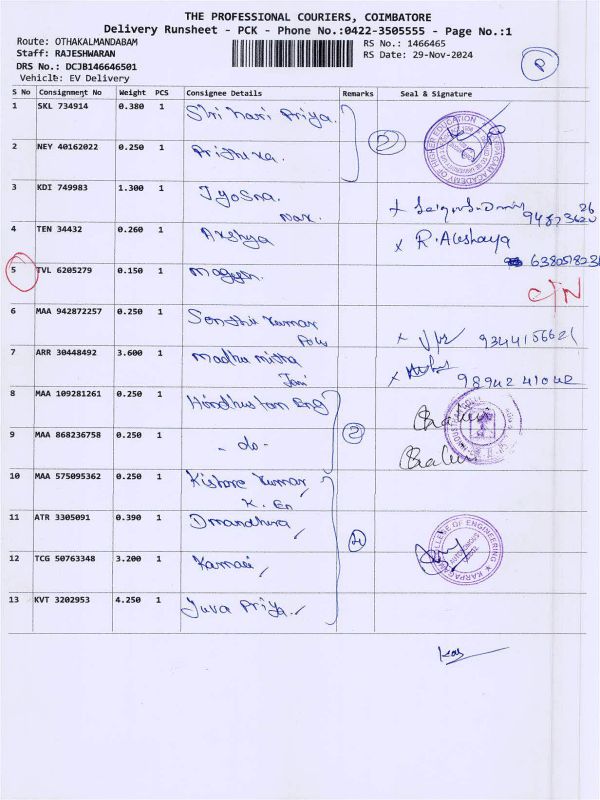 THE PROFESSIONAL COURIERS, COIMBATORE
Delivery Runsheet - PCK - Phone No.:0422-3505555 - Page No.:1
Route: OTHAKALMANDABAM
RS No.: 1466465
Staff: RAJESHWARAN
RS Date: 29-Nov-2024
DRS No.: DCJB146646501
Vehicle: EV Delivery
P
S No Consignment No Weight PCS Consignee Details Remarks Seal & Signature
1 SKL 734914 0.380 1 Shri hari Priya.
2 NEY 40162022 0.250 1
3 KDI 749983 1.300 1 Jyosna.
4 TEN 34432 0.260 1 Akshya R. Akshaya
5 TVL 6205279 0.150 1
C/N
6 MAA 942872257 0.250 1 Senthil Kumar
9344156621
7 ARR 30448492 3.600 1 Madhu mitha
98942 41042
8 MAA 109281261 0.250 1 Hindhustan Eng
2
9 MAA 868236758 0.250 1 - do -
10 MAA 575095362 0.250 1 Kishore Kumar
K. En
11 ATR 3305091 0.390 1
COLLEGE OF ENGINEERING
12 TCG 50763348 3.200 1
13 KVT 3202953 4.250 1 Yuva Priya.